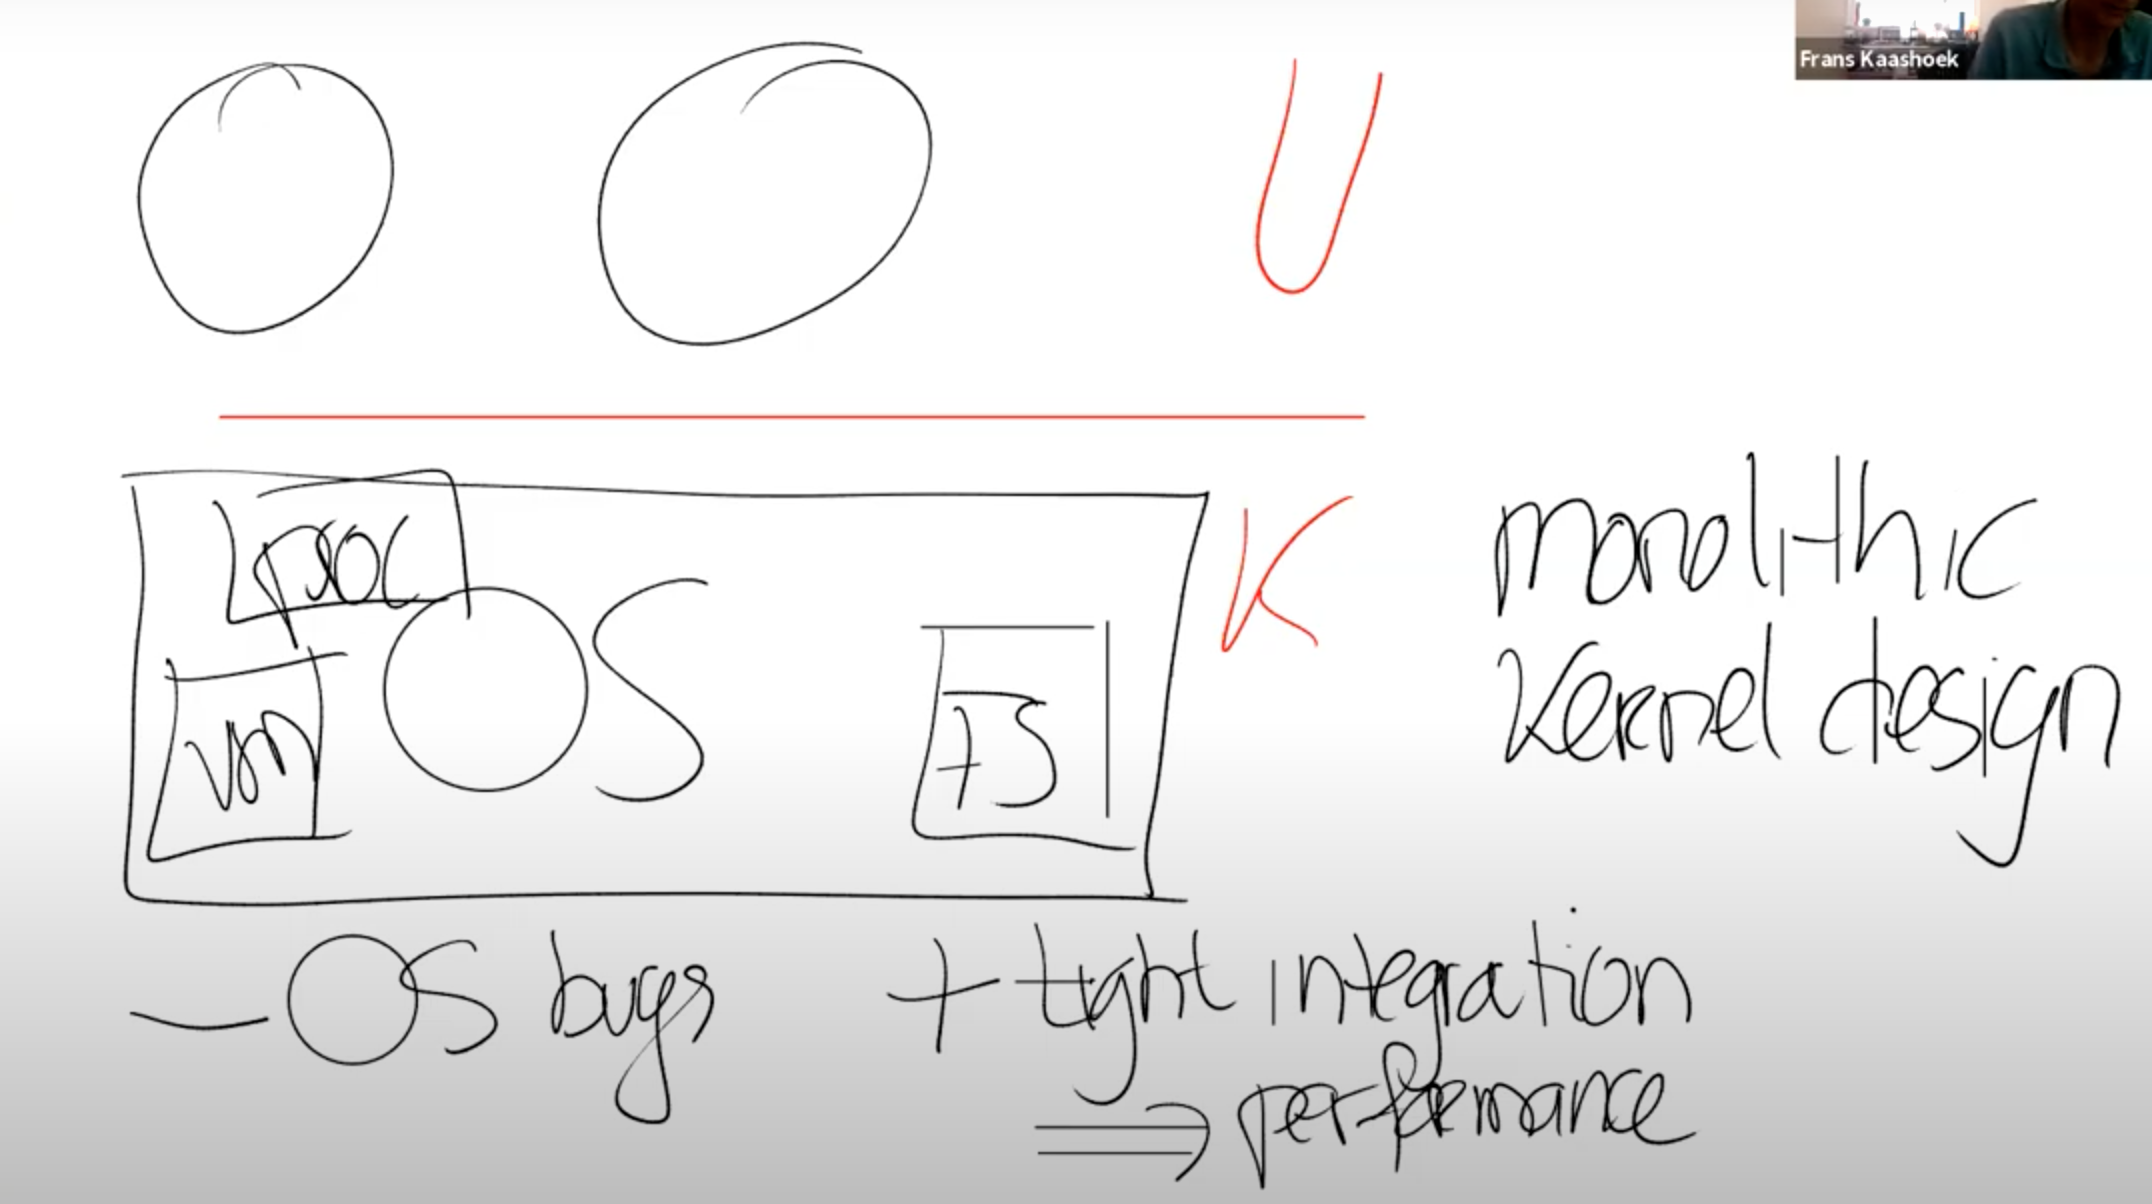 Frans Kaashoek
U
K
proc
OS
vm
FS
monolithic
kernel design
- OS bugs
+ tight integration
⇒ performance